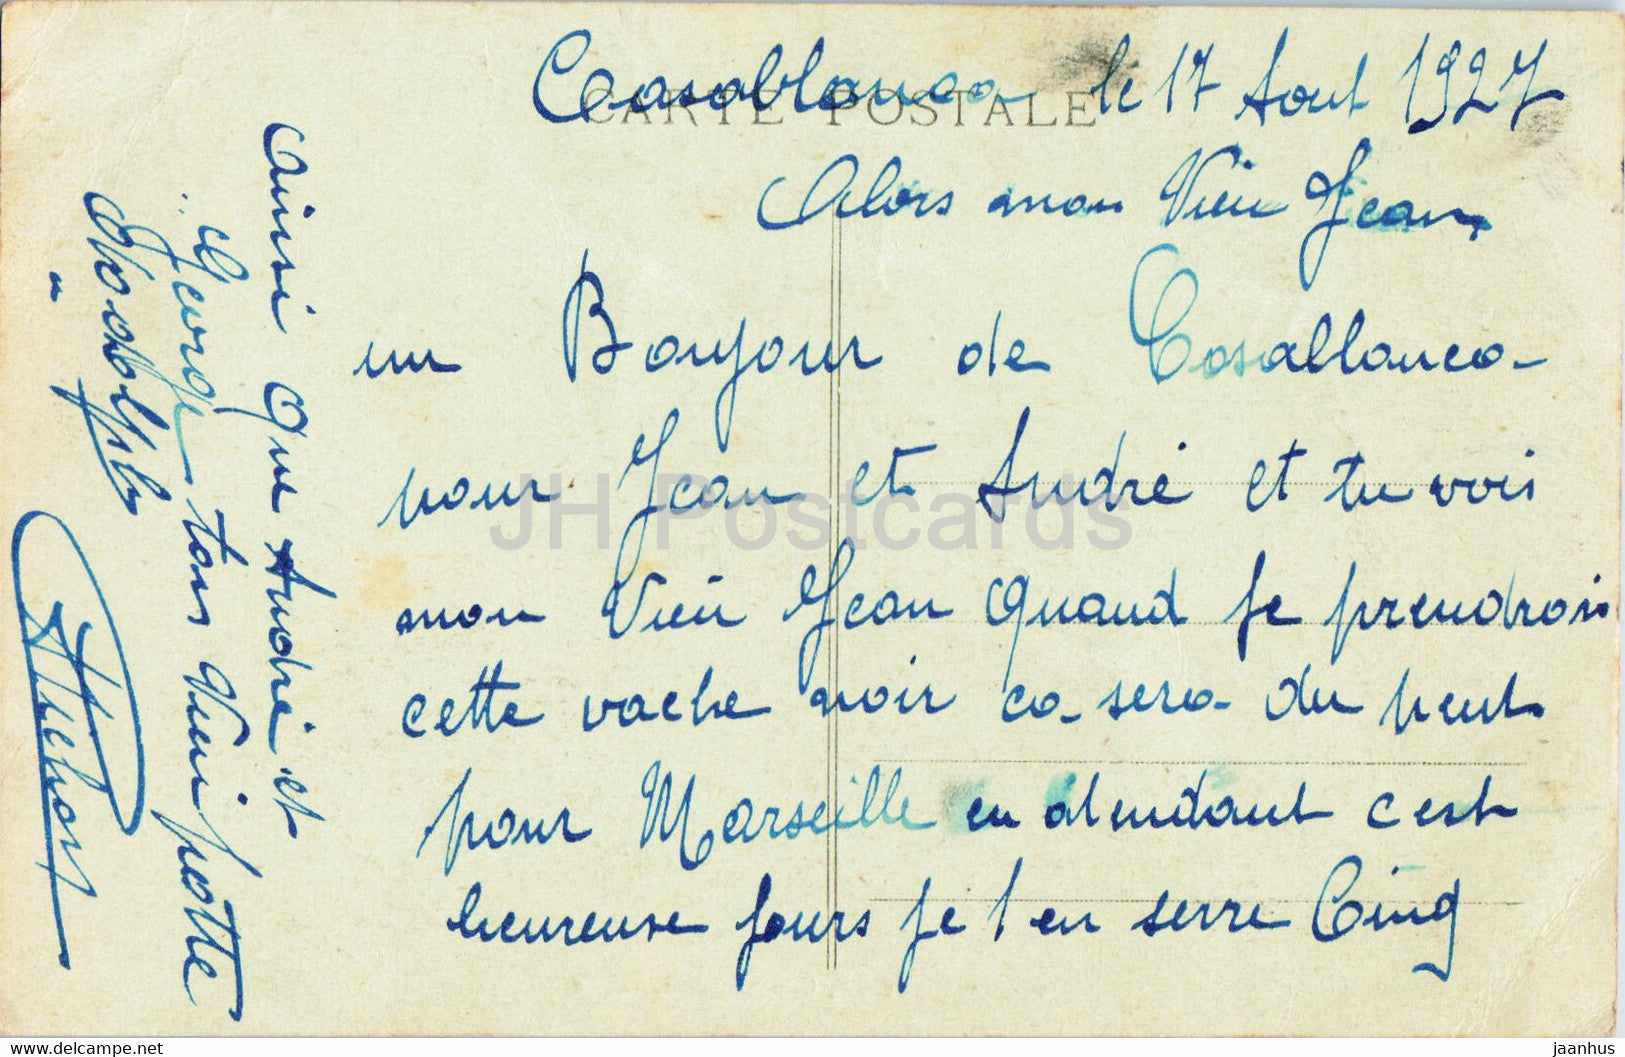 Casablanca le 17 Aout 1927
CARTE POSTALE
Alors mon Vieu Jean
un Bonjour de Casablanca
pour Jean et André et tu vois
mon Vieu Jean quand je prendrois
cette vache noir ca sera du peut
pour Marseille en atendant c'est
heureuse jours je t'en serre Cinq
ainsi que André et
George ton Vieu potte
JH Postcards
www.hippostcard.com
jaanhus